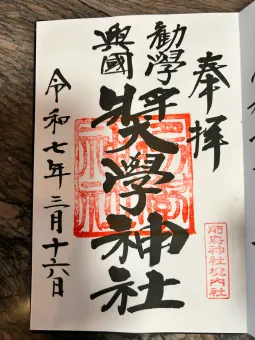 奉拝
勸學
興國
奬學神社
令和七年三月十六日
前鳥神社境内社